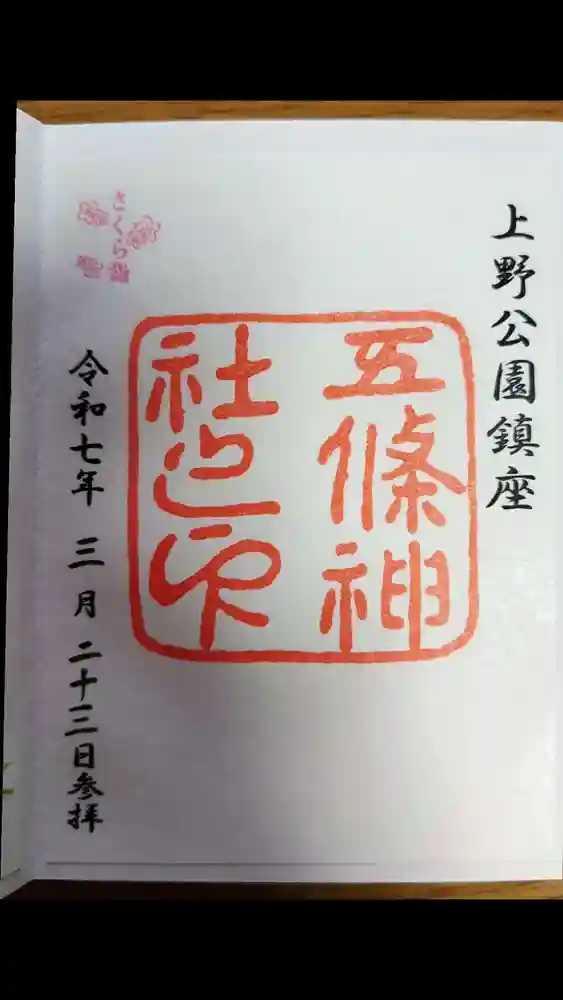 上野公園鎮座
五條神
社之印
さくら
令和七年 三月 二十三日参拝